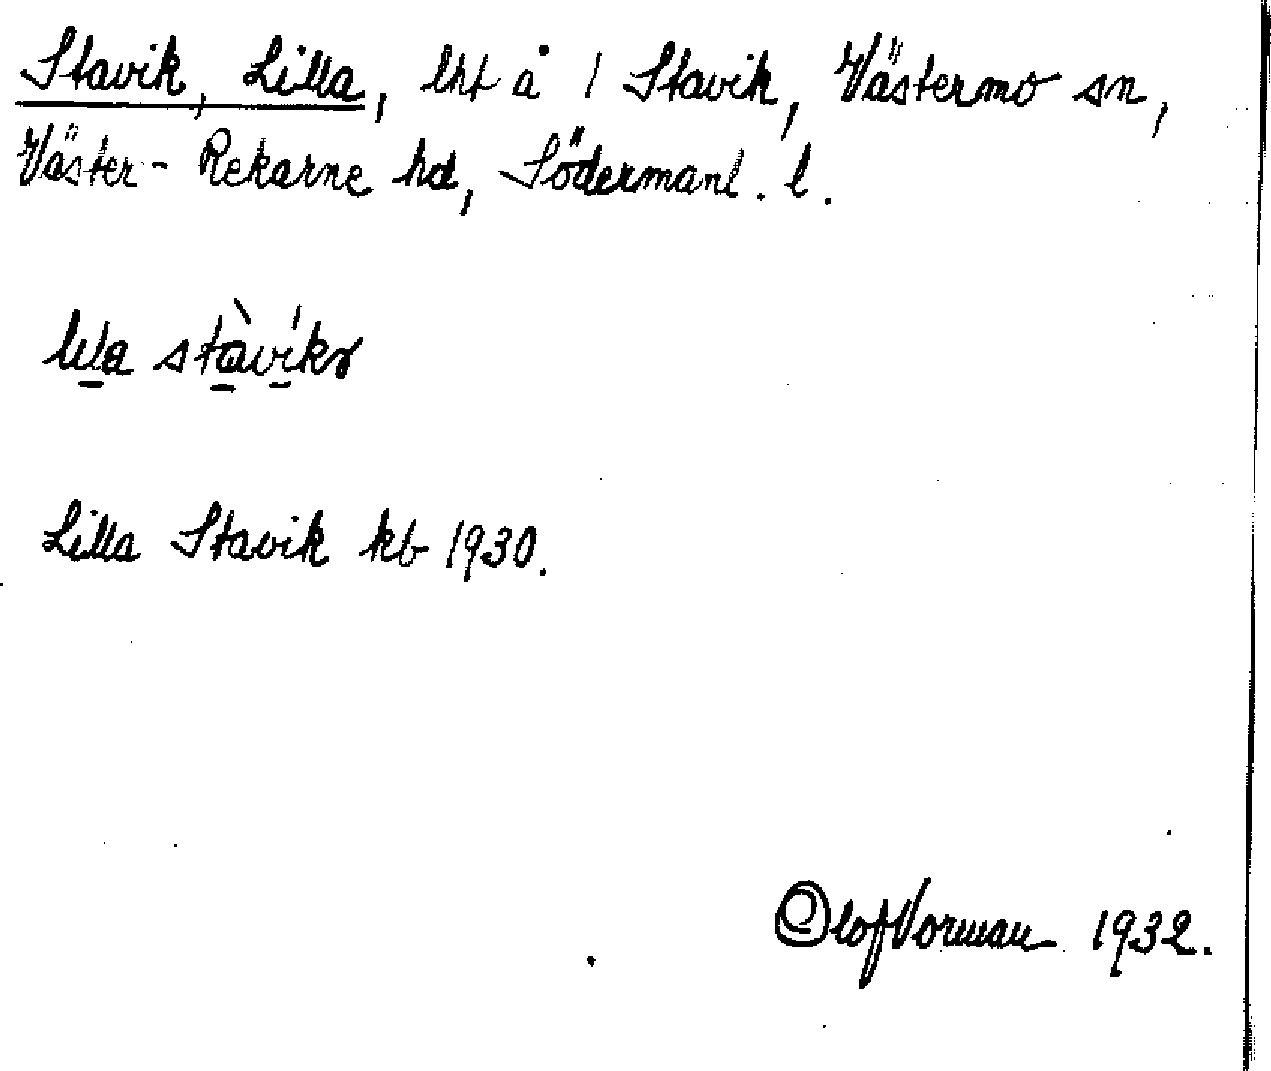 Stavik, Lilla, lht å 1 Stavik, Västermo sn,
Väster-Rekarne hd, Södermanl. l.
Lilla Stavik kb 1930.
Olof Vorman 1932.